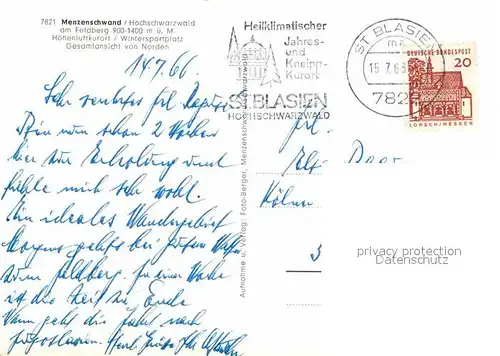 7821 Menzenschwand / Hochschwarzwald
am Feldberg 900-1400 m ü. M
Höhenluftkurort / Wintersportplatz
Gesamtansicht von Norden
14.7.66
Sehr verehrtes Frl.
Bin nun schon 2 Wochen
hier zur Erholung und
fühle mich sehr wohl.
Ein ideales Wandergebiet
Morgen geht's bei gutem
zum Feldberg. In einer Woche
ist die Zeit zu Ende
Dann geht die Fahrt nach
Jugoslawien. Herzl. Grüße Ihr
Aufnahme u. Verlag: Foto-Berger, Menzenschwand/Schwarzwald
Heilklimatischer
Jahres-
und
Kneipp-
Kurort
ST BLASIEN
HOCHSCHWARZWALD
ST BLASIEN
15.7.66
782
DEUTSCHE BUNDESPOST
20
LORSCH/HESSEN
Frl.
Kölner
3
privacy protection
Datenschutz